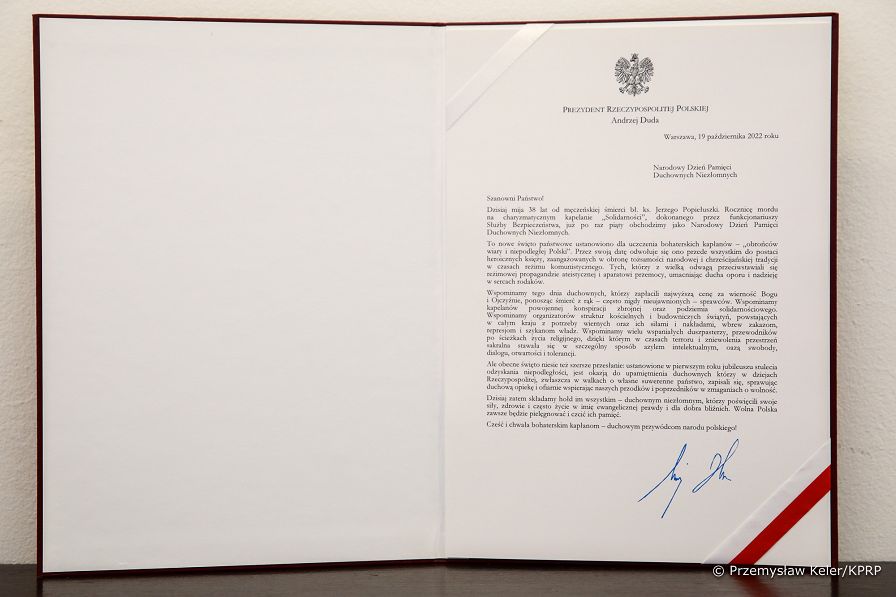 PREZYDENT RZECZYPOSPOLITEJ POLSKIEJ
Andrzej Duda
Warszawa, 19 października 2022 roku
Narodowy Dzień Pamięci
Duchownych Niezłomnych
Szanowni Państwo!
Dzisiaj mija 38 lat od męczeńskiej śmierci bł. ks. Jerzego Popiełuszki. Rocznicę mordu
na charyzmatycznym kapelanie „Solidarności”, dokonanego przez funkcjonariuszy
Służby Bezpieczeństwa, już po raz piąty obchodzimy jako Narodowy Dzień Pamięci
Duchownych Niezłomnych.
To nowe święto państwowe ustanowiono dla uczczenia bohaterskich kapłanów – „obrońców
wiary i niepodległej Polski”. Przez swoją datę odwołuje się ono przede wszystkim do postaci
heroicznych księży, zaangażowanych w obronę tożsamości narodowej i chrześcijańskiej tradycji
w czasach reżimu komunistycznego. Tych, którzy z wielką odwagą przeciwstawiali się
reżimowej propagandzie ateistycznej i aparatowi przemocy, umacniając ducha oporu i nadzieję
w sercach rodaków.
Wspominamy tego dnia duchownych, którzy zapłacili najwyższą cenę za wierność Bogu
i Ojczyźnie, ponosząc śmierć z rąk – często nigdy nieujawnionych – sprawców. Wspominamy
kapelanów powojennej konspiracji zbrojnej oraz podziemia solidarnościowego.
Wspominamy organizatorów struktur kościelnych i budowniczych świątyń, powstających
w całym kraju z potrzeby wiernych oraz ich siłami i nakładami, wbrew zakazom,
represjom i szykanom władz. Wspominamy wielu wspaniałych duszpasterzy, przewodników
po ścieżkach życia religijnego, dzięki którym w czasach terroru i zniewolenia przestrzeń
sakralna stawała się w szczególny sposób azylem intelektualnym, oazą swobody,
dialogu, otwartości i tolerancji.
Ale obecne święto niesie też szersze przesłanie: ustanowione w pierwszym roku jubileuszu stulecia
odzyskania niepodległości, jest okazją do upamiętnienia duchownych którzy w dziejach
Rzeczypospolitej, zwłaszcza w walkach o własne suwerenne państwo, zapisali się, sprawując
duchową opiekę i ofiarnie wspierając naszych przodków i poprzedników w zmaganiach o wolność.
Dzisiaj zatem składamy hołd im wszystkim – duchownym niezłomnym, którzy poświęcili swoje
siły, zdrowie i często życie w imię ewangelicznej prawdy i dla dobra bliźnich. Wolna Polska
zawsze będzie pielęgnować i czcić ich pamięć.
Cześć i chwała bohaterskim kapłanom – duchowym przywódcom narodu polskiego!
© Przemysław Keler/KPRP